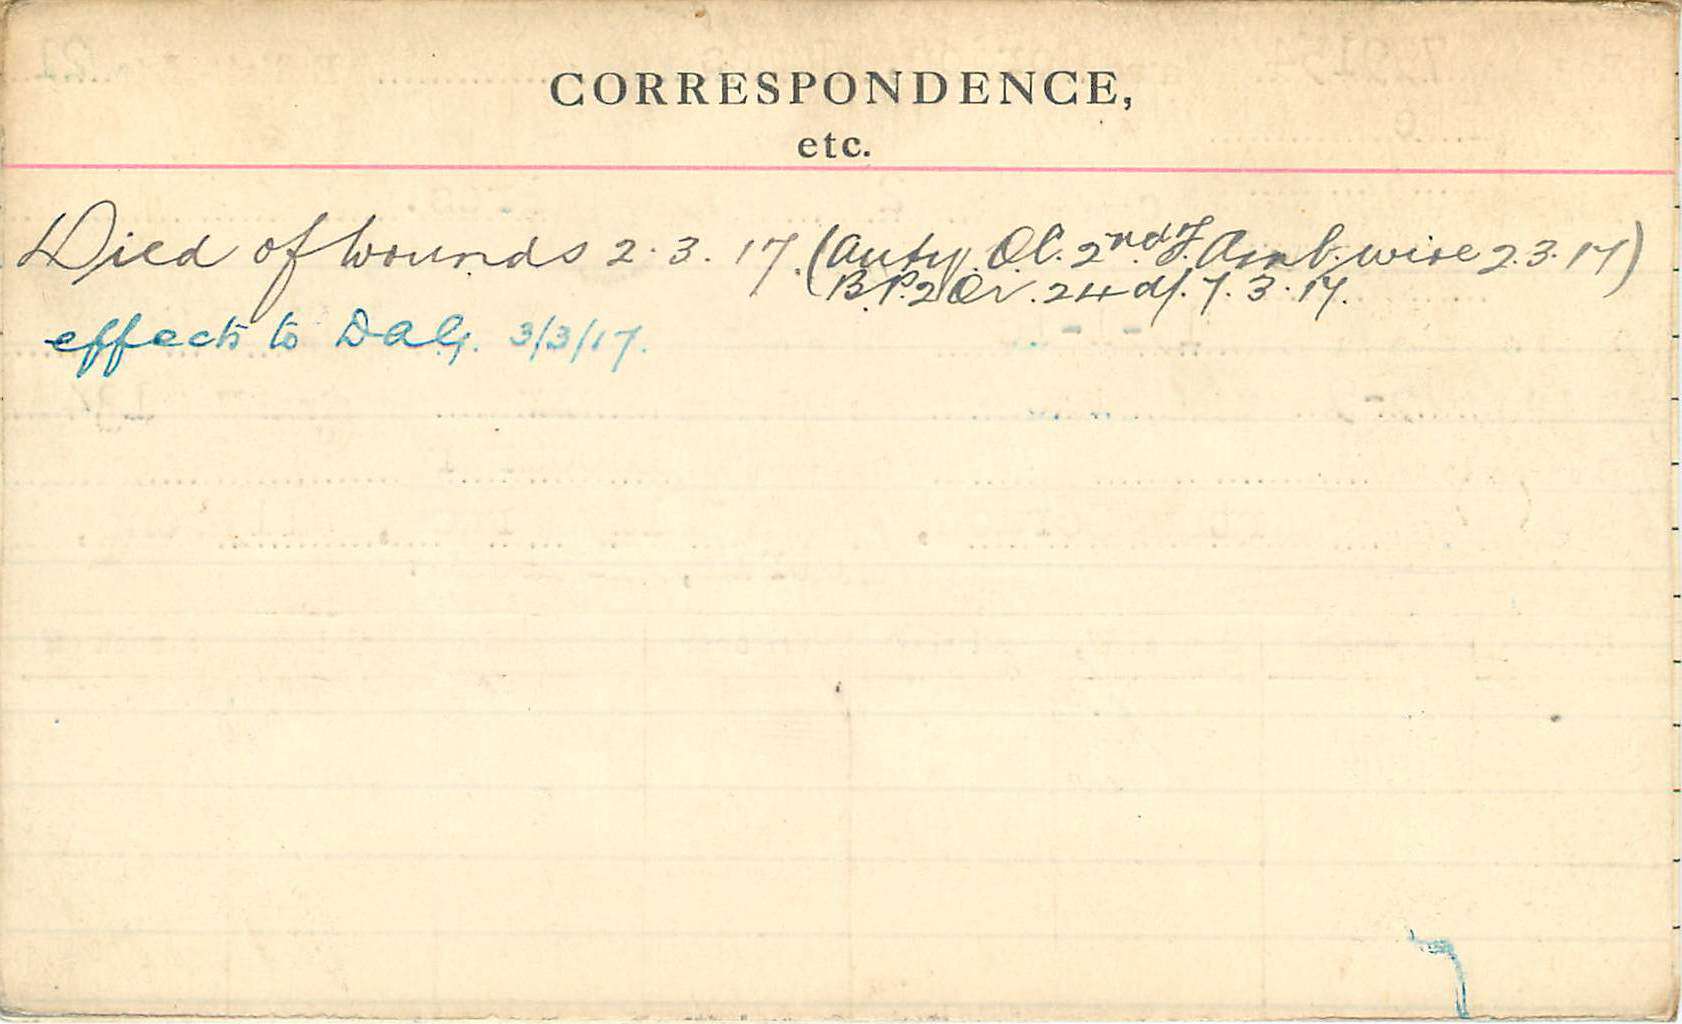 CORRESPONDENCE,
etc.
Died of Wounds 2.3.17. (Auty. OC. 2nd F. Amb. wire 2.3.17)
B.P. 2 Or. 24 d/. 7.3.17.
effects to DAG. 3/3/17.